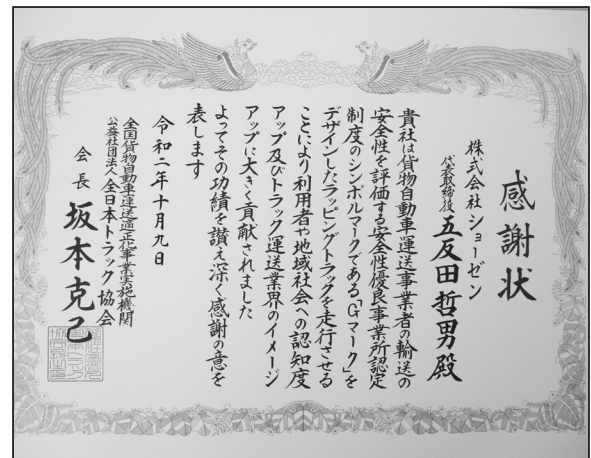 感謝状
株式会社ショーゼン
代表取締役 五反田哲男殿
貴社は貨物自動車運送事業者の輸送の
安全性を評価する安全性優良事業所認定
制度のシンボルマークである「Gマーク」を
デザインしたラッピングトラックを走行させる
ことにより利用者や地域社会への認知度
アップ及びトラック運送業界のイメージ
アップに大きく貢献されました
よってその功績を讃え深く感謝の意を
表します
令和二年十月九日
全国貨物自動車運送適正化事業実施機関
公益社団法人全日本トラック協会
会長 坂本克己